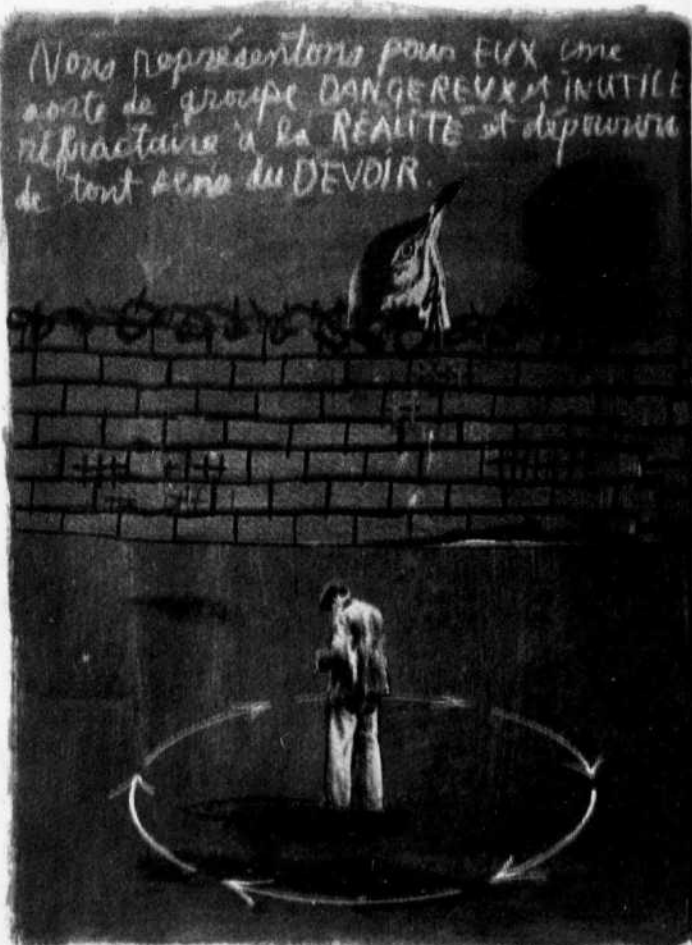 Nous représentons pour EUX une
sorte de groupe DANGEREUX et INUTILE
réfractaire à la RÉALITÉ et dépourvu
de tout sens du DEVOIR.